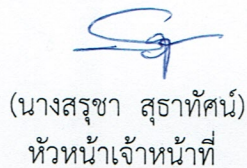 (นางสรุชา สุธาทัศน์)
หัวหน้าเจ้าหน้าที่